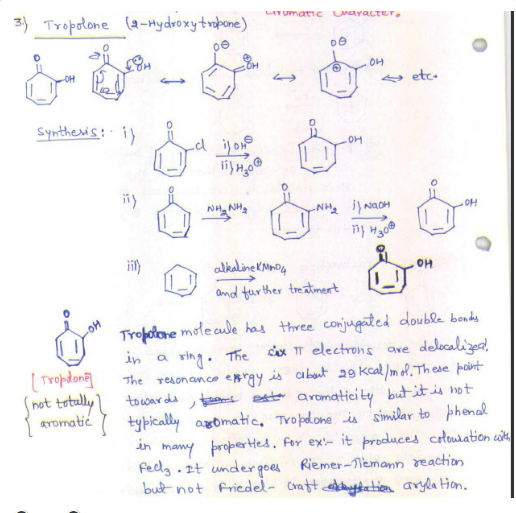 aromatic Character.
3.) Tropolone (2-Hydroxytropone)
O O OH OH O⊖ ⊕OH O⊖ ⊕ OH ↔ ↔ etc.
Synthesis: i) O Cl i) OH⊖ ii) H3O⊕ O OH
ii) O NH2NH2 O NH2 i) NaOH ii) H3O⊕ O OH
iii) alkaline KMnO4 and further treatment O OH
O OH
[Tropolone]
{not totally aromatic}
Tropolone molecule has three conjugated double bonds
in a ring. The six π electrons are delocalized.
The resonance energy is about 28 Kcal/mol. These point
towards, aromaticity but it is not
typically aromatic. Tropolone is similar to phenol
in many properties. For ex:- it produces colouration with
FeCl3. It undergoes Riemer-Tiemann reaction
but not Friedel- Craft arylation.